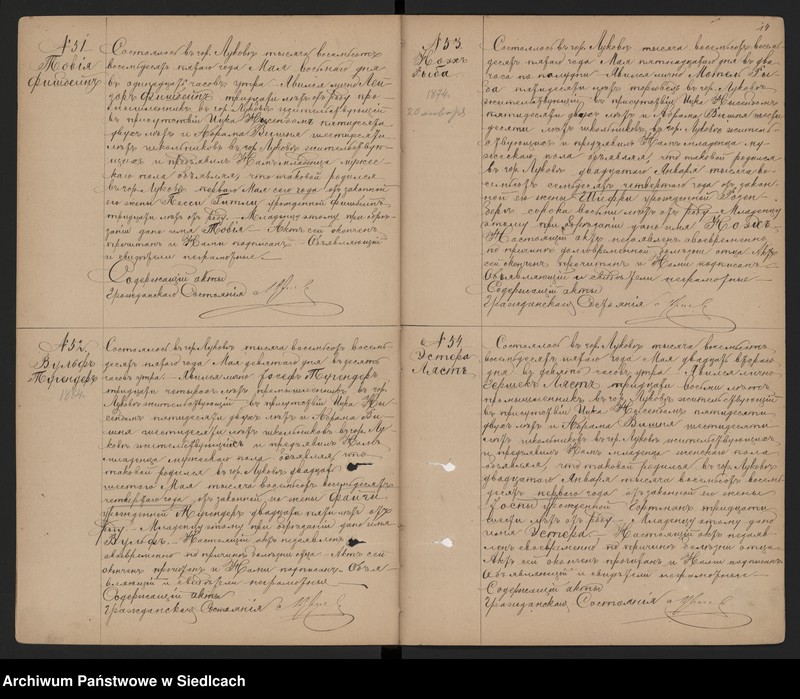 № 51
Товія
Фишбеинъ
Состоялось въ гор. Луковѣ тысяча восемьсотъ
восемьдесятъ пятаго года Мая восьмаго дня
въ одинадцать часовъ утра. Явился лично
тридцати лѣтъ отъ роду
въ гор. Луковѣ жительствующій
въ присутствіи Ицка Нусенбаумъ пятидесяти
двухъ лѣтъ и Абрама Вишня шестидесяти
лѣтъ школьниковъ въ гор. Луковѣ жительствую-
щихъ и предъявилъ Намъ младенца мужес-
каго пола объявляя, что таковой родился
въ гор. Луковѣ перваго Мая сего года отъ законной
его жены Песси Гитли урожденной
тридцати лѣтъ отъ роду. Младенцу этому при обрѣ-
заніи дано имя Товія. Актъ сей оконченъ
прочитанъ и Нами подписанъ. Объявляющій
и свидѣтели неграмотные.
Содержащій акты
Гражданскаго Состоянія
№ 52.
Вульфъ
Тугендеръ
1884.
Состоялось въ гор. Луковѣ тысяча восемьсотъ восемь-
десятъ пятаго года Мая девятаго дня въ десять
часовъ утра. Явился лично Іосефъ Тугендеръ
тридцати четырехъ лѣтъ промышленникъ въ гор.
Луковѣ жительствующій въ присутствіи Ицка Ну-
пятидесяти двухъ лѣтъ и Абрама Ви-
шня шестидесяти лѣтъ школьниковъ въ гор. Лу-
ковѣ жительствующихъ и предъявилъ Намъ
младенца мужескаго пола объявляя что
таковой родился въ гор. Луковѣ двадцать
шестого Мая тысяча восемьсотъ восемьдесятъ
четвертаго года отъ законной его жены
урожденной двадцати пяти лѣтъ отъ
роду. Младенцу этому при обрѣзаніи дано имя
Вульфъ. Настоящій актъ
своевременно по причинѣ болѣзни отца. Актъ сей
оконченъ прочитанъ и Нами подписанъ. Объя-
вляющій и свидѣтели неграмотные
Содержащій акты
Гражданскаго Состоянія
24
№ 53.
Рыба
1874.
20 января
Состоялось въ гор. Луковѣ тысяча восемьсотъ восемь-
десятъ пятаго года Мая пятнадцатаго дня въ два
часа по полудни. Явился лично Мотель Ры-
ба пятидесяти лѣтъ въ гор. Луковѣ
жительствующій въ присутствіи Ицка
пятидесяти двухъ лѣтъ и Абрама Вишня шести-
десяти лѣтъ школьниковъ въ гор. Луковѣ житель-
ствующихъ и предъявилъ Намъ младенца му-
жескаго пола объявляя, что таковой родился
въ гор. Луковѣ двадцатаго Января тысяча во-
семьсотъ семьдесятъ четвертаго года отъ закон-
ной его жены Шифри урожденной Розен-
бергъ сорока восьми лѣтъ отъ роду. Младенцу
этому при обрѣзаніи дано имя
Настоящій актъ своевременно
по причинѣ болѣзни отца. Актъ
сей оконченъ прочитанъ и Нами подписанъ.
Объявляющій и свидѣтели неграмотные
Содержащій акты
Гражданскаго Состоянія
№ 54
Эстера
Лястъ
Состоялось въ гор. Луковѣ тысяча восемьсотъ
восемьдесятъ пятаго года Мая двадцать втораго
дня въ девять часовъ утра. Явился лично
Лястъ тридцати восьми лѣтъ
промышленникъ въ гор. Луковѣ жительствующій
въ присутствіи Ицка пятидесяти
двухъ лѣтъ и Абрама Вишня шестидесяти
лѣтъ школьниковъ въ гор. Луковѣ жительствующихъ
и предъявилъ Намъ младенца женскаго пола
объявляя, что таковой родился въ гор. Луковѣ
двадцатаго Января тысяча восемьсотъ восемь-
десятъ перваго года отъ законной его жены
урожденной тридцати
лѣтъ отъ роду. Младенцу этому дано
имя Эстера. Настоящій актъ
своевременно по причинѣ болѣзни отца.
Актъ сей оконченъ прочитанъ и Нами подписанъ
Объявляющій и свидѣтели неграмотные
Содержащій акты
Гражданскаго Состоянія
Archiwum Państwowe w Siedlcach